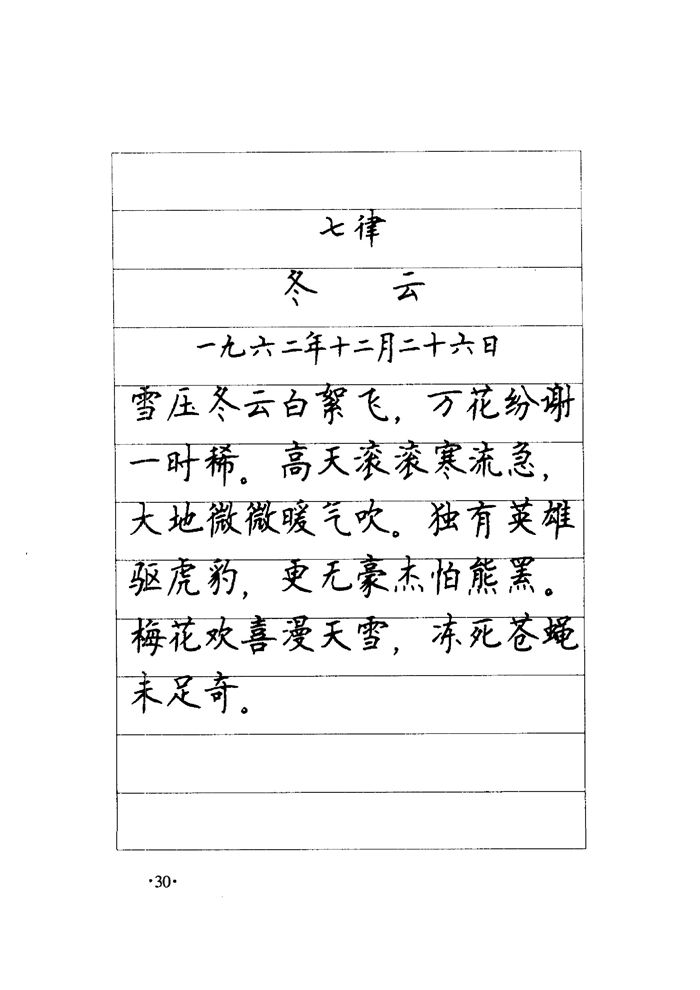 七律
冬 云
一九六二年十二月二十六日
雪压冬云白絮飞，万花纷谢
一时稀。高天滚滚寒流急，
大地微微暖气吹。独有英雄
驱虎豹，更无豪杰怕熊罴。
梅花欢喜漫天雪，冻死苍蝇
未足奇。
·30·